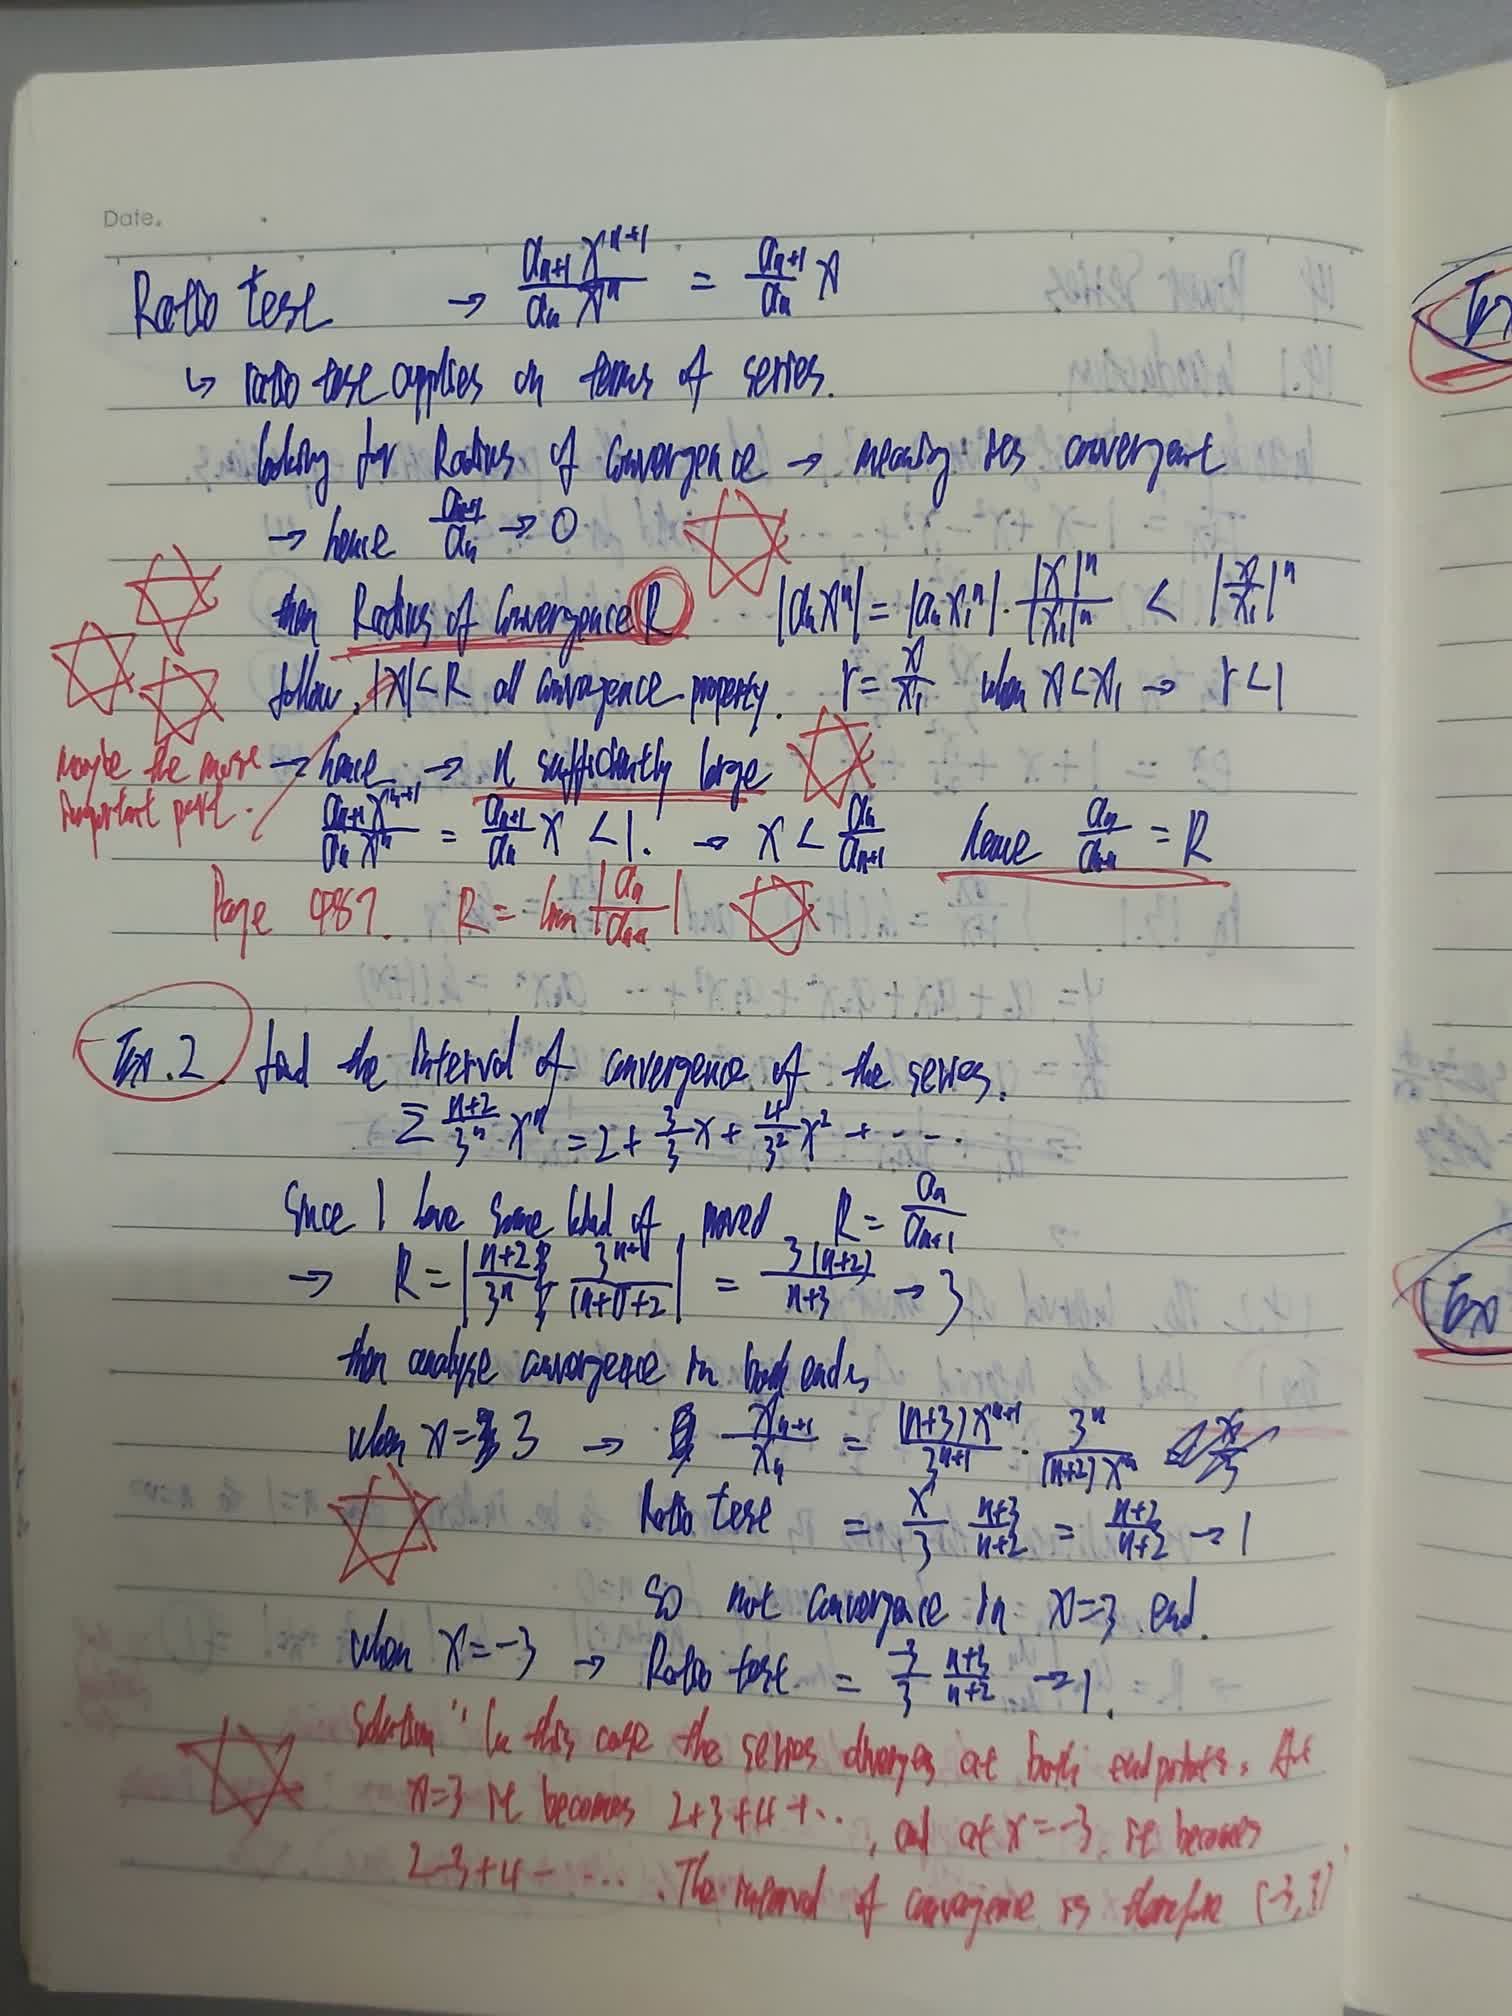 Date.
Ratio test → a_{n+1} x^{n+1} / a_n x^n = a_{n+1}/a_n x
↳ ratio test applies on terms of series.
looking for Radius of convergence → meaning its convergent
→ hence a_{n+1}/a_n → 0
then Radius of Convergence R |a_n x^n| = |a_n x_1^n| · |x|^n/|x_1|^n < |x/x_1|^n
follow, |x| < R all convergence property. r = x/x_1 when x < x_1 → r < 1
Maybe the more important part.
→ hence → n sufficiently large
a_{n+1} x^{n+1} / a_n x^n = a_{n+1}/a_n x < 1. → x < a_n/a_{n+1} hence a_n/a_{n+1} = R
Page 487. R = lim |a_n/a_{n+1}|
Ex.2 find the interval of convergence of the series.
Σ (n+2)/3^n x^n = 2 + 3/3 x + 4/3^2 x^2 + ····
Since I have some kind of proved R = a_n/a_{n+1}
→ R = |(n+2)/3^n · 3^{n+1}/((n+1)+2)| = 3(n+2)/(n+3) → 3
then analyse convergence in both ends
when x = 3 → x_{n+1}/x_n = (n+3)x^{n+1}/3^{n+1} · 3^n/((n+2)x^n)
Ratio test = x/3 (n+3)/(n+2) = (n+2)/(n+2) → 1
So not convergence in x=3 end.
when x = -3 → Ratio test = -3/3 (n+3)/(n+2) → 1.
Solution " In this case the series diverges at both endpoints. At
x=3 it becomes 2+3+4+··, and at x=-3, it becomes
2-3+4-····. The interval of convergence is therefore (-3,3)"
Ex